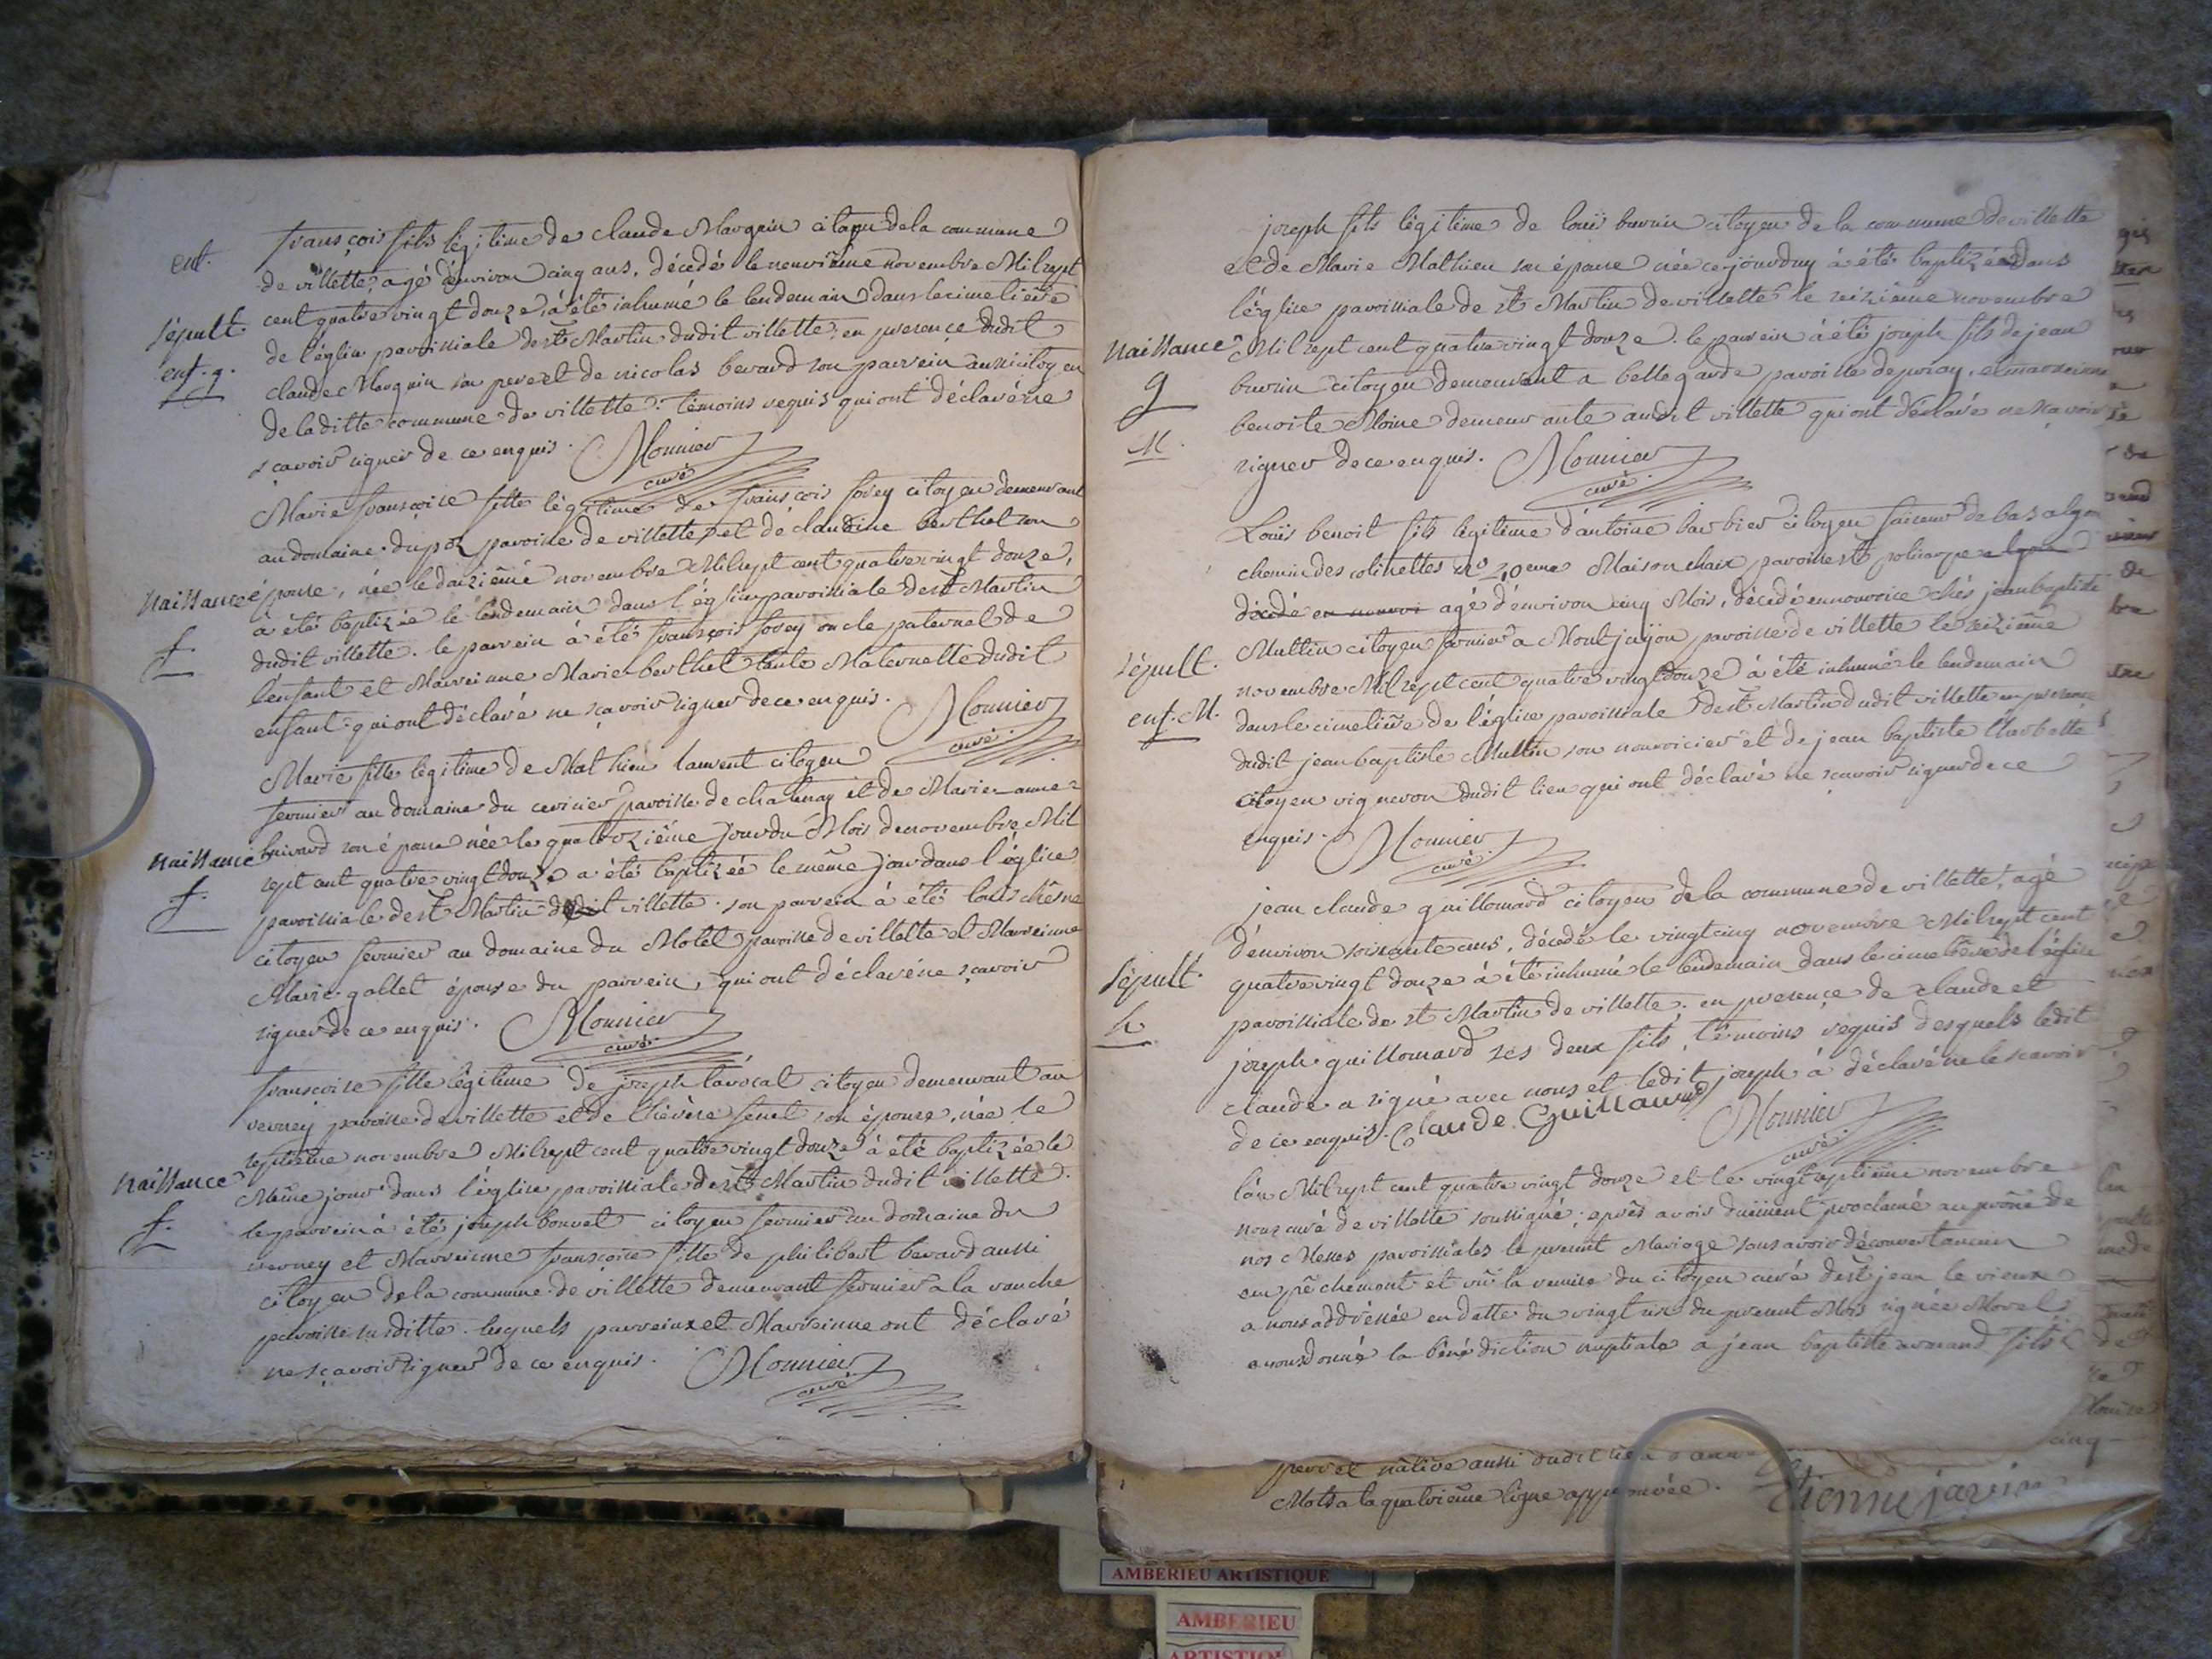 ent.
françois fils légitime de claude Marguin citoyen de la commune
de villette, agé d'environ cinq ans, décédé le neuvième novembre Mil sept
sépult.
cent quatre vingt douze, à été inhumé le lendemain dans le cimetière
de l'église paroissiale de st Martin dudit villette, en presence dudit
enf. g.
claude Marguin son pere et de nicolas berard son parrein aussi citoyen
de laditte commune de villette. témoins requis qui ont déclaré ne
sçavoir signer de ce enquis. Monnier
curé
Marie françoise fille légitime de françois forey citoyen demeurant
au domaine du paroisse de villette et de claudine berthet son
naissance
épouse, née le douzième novembre Mil sept cent quatre vingt douze,
à été baptizée le lendemain dans l'église paroissiale de st Martin
f.
dudit villette. le parrein à été françois forey oncle paternel de
l'enfant et Marreinne Marie berthet tante Maternelle dudit
enfant qui ont déclaré ne sçavoir signer de ce enquis. Monnier
curé.
Marie fille légitime de Mathieu laurent citoyen
fermier au domaine du cerisier paroisse de chatenay et de Marie anne
naissance
brivard son épouse née le quatorzième jour du Mois de novembre Mil
f.
sept cent quatre vingt douze a été baptizée le même jour dans l'église
paroissiale de st Martin dudit villette. son parrein à été louis chêsne
citoyen fermier au domaine du Molet paroisse de villette et Marreinne
Marie gallet épouse du parrein, qui ont déclaré ne sçavoir
signer de ce enquis. Monnier
curé.
françoise fille légitime de joseph lavocat citoyen demeurant au
verney paroisse de villette et de thérèse senet son épouse, née le
septième novembre Mil sept cent quatre vingt douze à été baptizée le
naissance
Même jour dans l'église paroissiale de st Martin dudit villette.
f.
le parrein à été joseph bonnet citoyen fermier au domaine du
verney et Marreinne françoise fille de philibert berard aussi
citoyen de la commune de villette demeurant fermier a la ranche
paroisse susditte. lesquels parreins et Marreinne ont déclaré
ne sçavoir signer de ce enquis. Monnier
curé
joseph fils légitime de louis buvrin citoyen de la commune de villette
et de Marie Mathieu son épouse née cejourdhuy à été baptizé dans
l'église paroissiale de st Martin de villette le seizième novembre
naissance
Mil sept cent quatre vingt douze. le parrein à été joseph fils de jean
g
buvrin citoyen demeurant a bellegarde paroisse de priay, et marreinne
M.
benoite Moine demeurante audit villette qui ont déclaré ne sçavoir
signer de ce enquis. Monnier
curé.
Louis benoit fils légitime d'antoine barbier citoyen faiseur de bas a lyon
chemin des colinettes no 20eme Maison chaix paroisse st policarpe a lyon
décédé en nourri agé d'environ cinq Mois, décédé en nourrice chés jean baptiste
sépult.
Multin citoyen fermier a Montjayon paroisse de villette le seizième
novembre Mil sept cent quatre vingt douze à été inhumé le lendemain
enf. M.
dans le cimetière de l'église paroissiale de st Martin dudit villette en presence
dudit jean baptiste Multin son nourricier et de jean baptiste
citoyen vigneron dudit lieu qui ont déclaré ne sçavoir signer de ce
enquis. Monnier
curé.
jean claude guillomard citoyen de la commune de villette, agé
d'environ soixante ans, décédé le vingt cinq novembre Mil sept cent
sépult.
quatre vingt douze à été inhumé le lendemain dans le cimetière de l'église
h
paroissiale de st Martin de villette; en presence de claude et
joseph guillomard ses deux fils, témoins requis desquels ledit
claude a signé avec nous et ledit joseph à déclaré ne le scavoir
de ce enquis. Claude Guillaumd Monnier
curé.
l'an Mil sept cent quatre vingt douze et le vingt septième novembre
nous curé de villette soussigné, après avoir duëment proclamé au prône de
nos Messes paroissiales le present Mariage sans avoir découvert aucun
empêchement et vû la remise du citoyen curé de st jean le vieux
a nous addréssée en datte du vingt six du present Mois signée Morel
avons donné la bénédiction nuptiale a jean baptiste armand fils
perret native aussi dudit lieu
Mots a la quatrième ligne approuvée. Etienne javin
AMBERIEU ARTISTIQUE
AMBERIEU
ARTISTIQUE